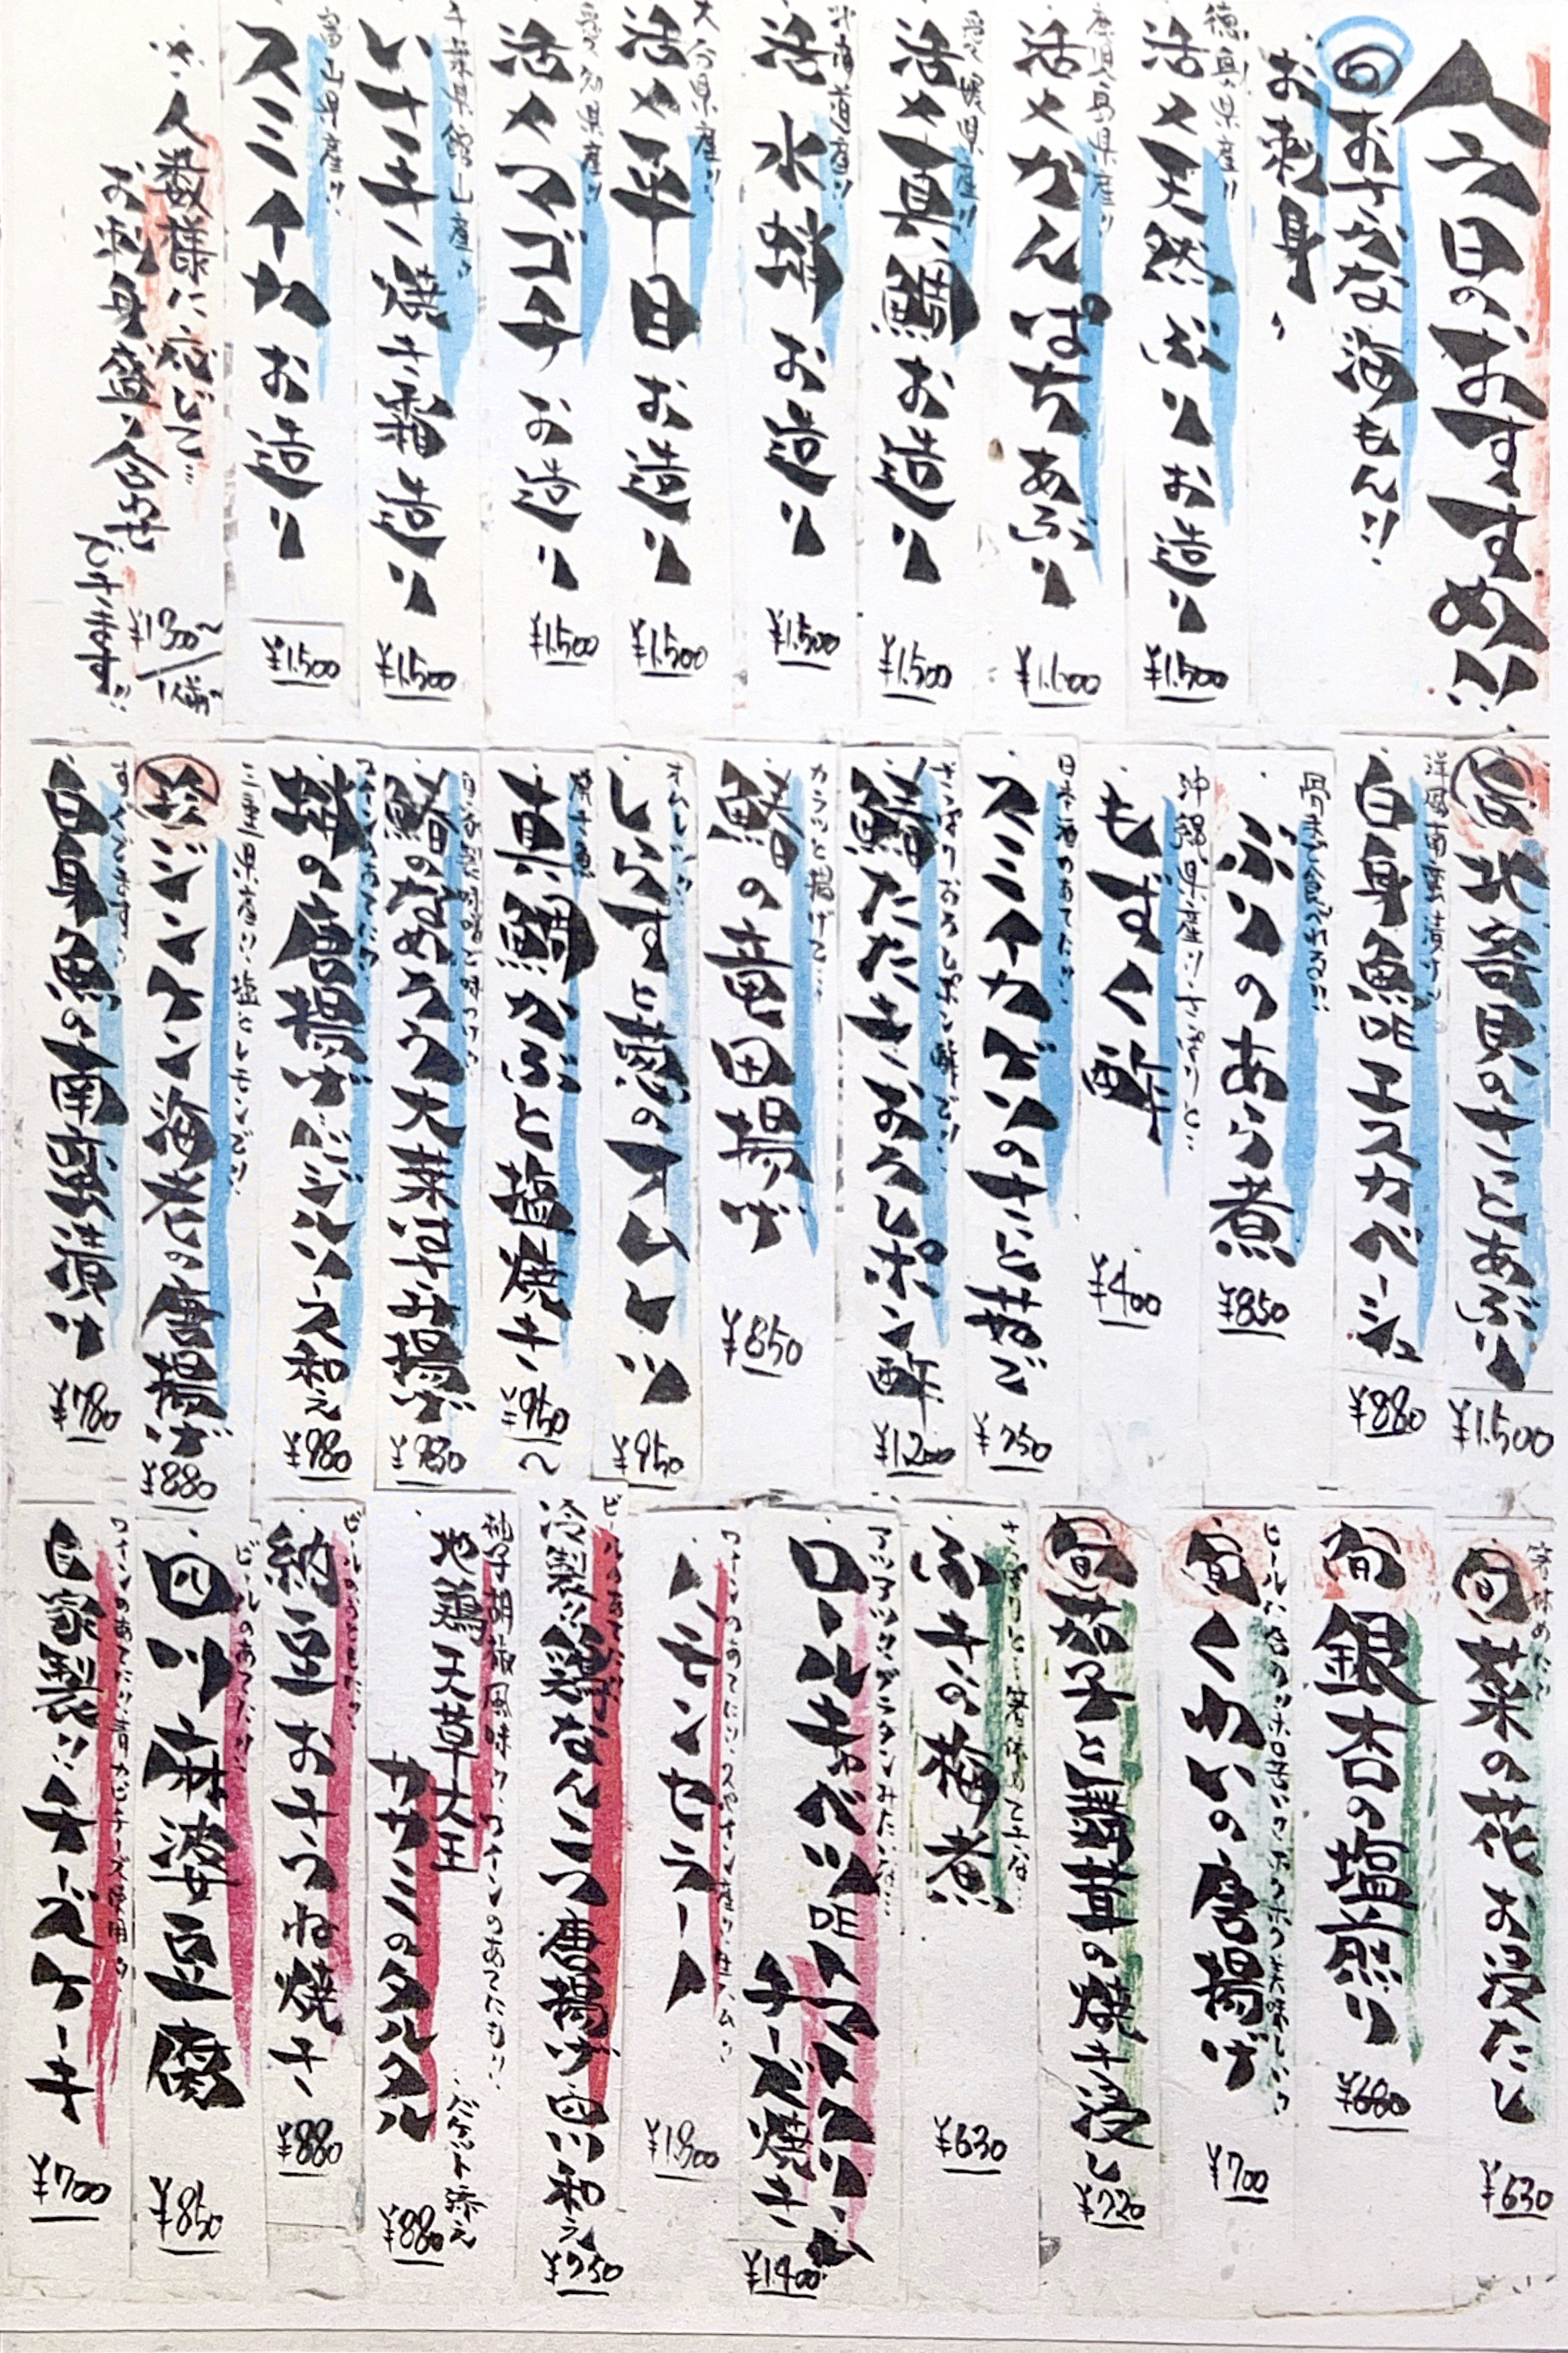 今日のおすすめ!!
旬おすすめな海もん!!
お刺身
徳島県産!!
活〆天然ぶりお造り
¥1,500
鹿児島県産!!
活〆かんぱちあぶり
愛媛県産!!
活〆真鯛お造り
¥1,500
北海道産!!
活水蛸お造り
¥1,500
大分県産!!
活〆平目お造り
¥1,500
愛知県産!!
活〆マゴチお造り
¥1,500
千葉県館山産!!
いサキ焼き霜造り
¥1,500
富山県産!!
スミイカお造り
¥1,500
※人数様に応じて…
お刺身盛り合わせ
できます!!
¥1300〜/1人前
旬 北寄貝のさっとあぶり
¥1,500
洋風南蛮漬け
白身魚のエスカベーシュ
¥880
骨まで食べれる!!
ぶりのあら煮
¥850
沖縄県産!!さっぱりと…
もずく酢
¥400
日本酒のあてに!!
スミイカゲソのさっと茹で
¥750
鰆たたきおろしポン酢
¥1200
カラッと揚げて…
鰆の竜田揚げ
¥850
しらすと葱のオムレツ
¥950
真鯛かぶと塩焼き
¥950〜
鰆のなめろう大葉はさみ揚げ
蛸の唐揚げバジルソース和え
三重県産!!塩とレモンで!!
珍 ジンケン海老の唐揚げ
¥880
白身魚の南蛮漬け
¥780
旬 菜の花お浸たし
¥630
旬 銀杏の塩煎り
¥680
旬 くわいの唐揚げ
¥700
旬 茄子と舞茸の焼き浸し
¥720
ふきの梅煮
¥630
アツアツグラタンみたいな…
ロールキャベツのトマトクリーム
チーズ焼き
¥1400
ワインのあてに!!スペイン産!!生ハム!!
ハモンセラーノ
ビールのあてに!!
冷製!!鶏なんこつ唐揚げ四川和え
¥750
柚子胡椒風味!!ワインのあてにも!!
地鶏天草大王
ササミのタルタル
バケット添え
¥880
納豆おきつね焼き
¥880
ビールのあてに!!
四川麻婆豆腐
¥850
自家製!!チーズケーキ
¥700